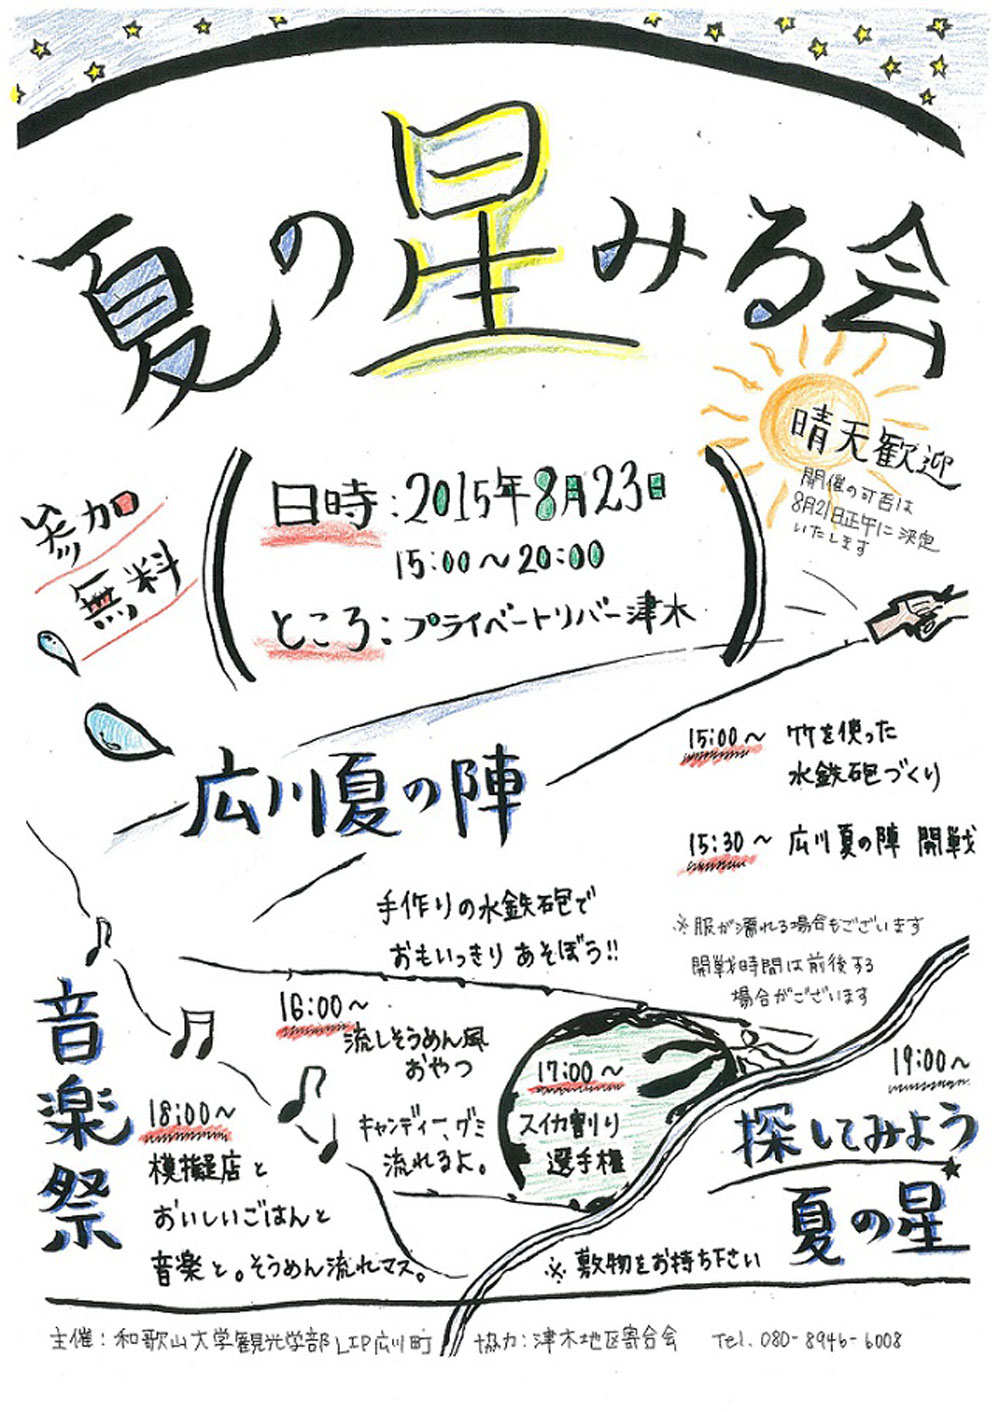 夏の星みる会
晴天歓迎
開催の可否は
8月21日正午に決定
いたします
参加
無料
日時：2015年8月23日
15:00～20:00
ところ：プライベートリバー津木
広川夏の陣
15:00～ 竹を使った
水鉄砲づくり
15:30～ 広川夏の陣 開戦
手作りの水鉄砲で
おもいっきりあそぼう!!
※服が濡れる場合もございます
開戦時間は前後する
場合がございます
16:00～
流しそうめん風
おやつ
キャンディー、グミ
流れるよ。
17:00～
スイカ割り
選手権
音楽祭
18:00～
模擬店と
おいしいごはんと
音楽と。そうめん流れマス。
19:00～
探してみよう
夏の星
※敷物をお持ち下さい
主催：和歌山大学観光学部LIP広川町 協力：津木地区寄合会 Tel. 080-8946-6008